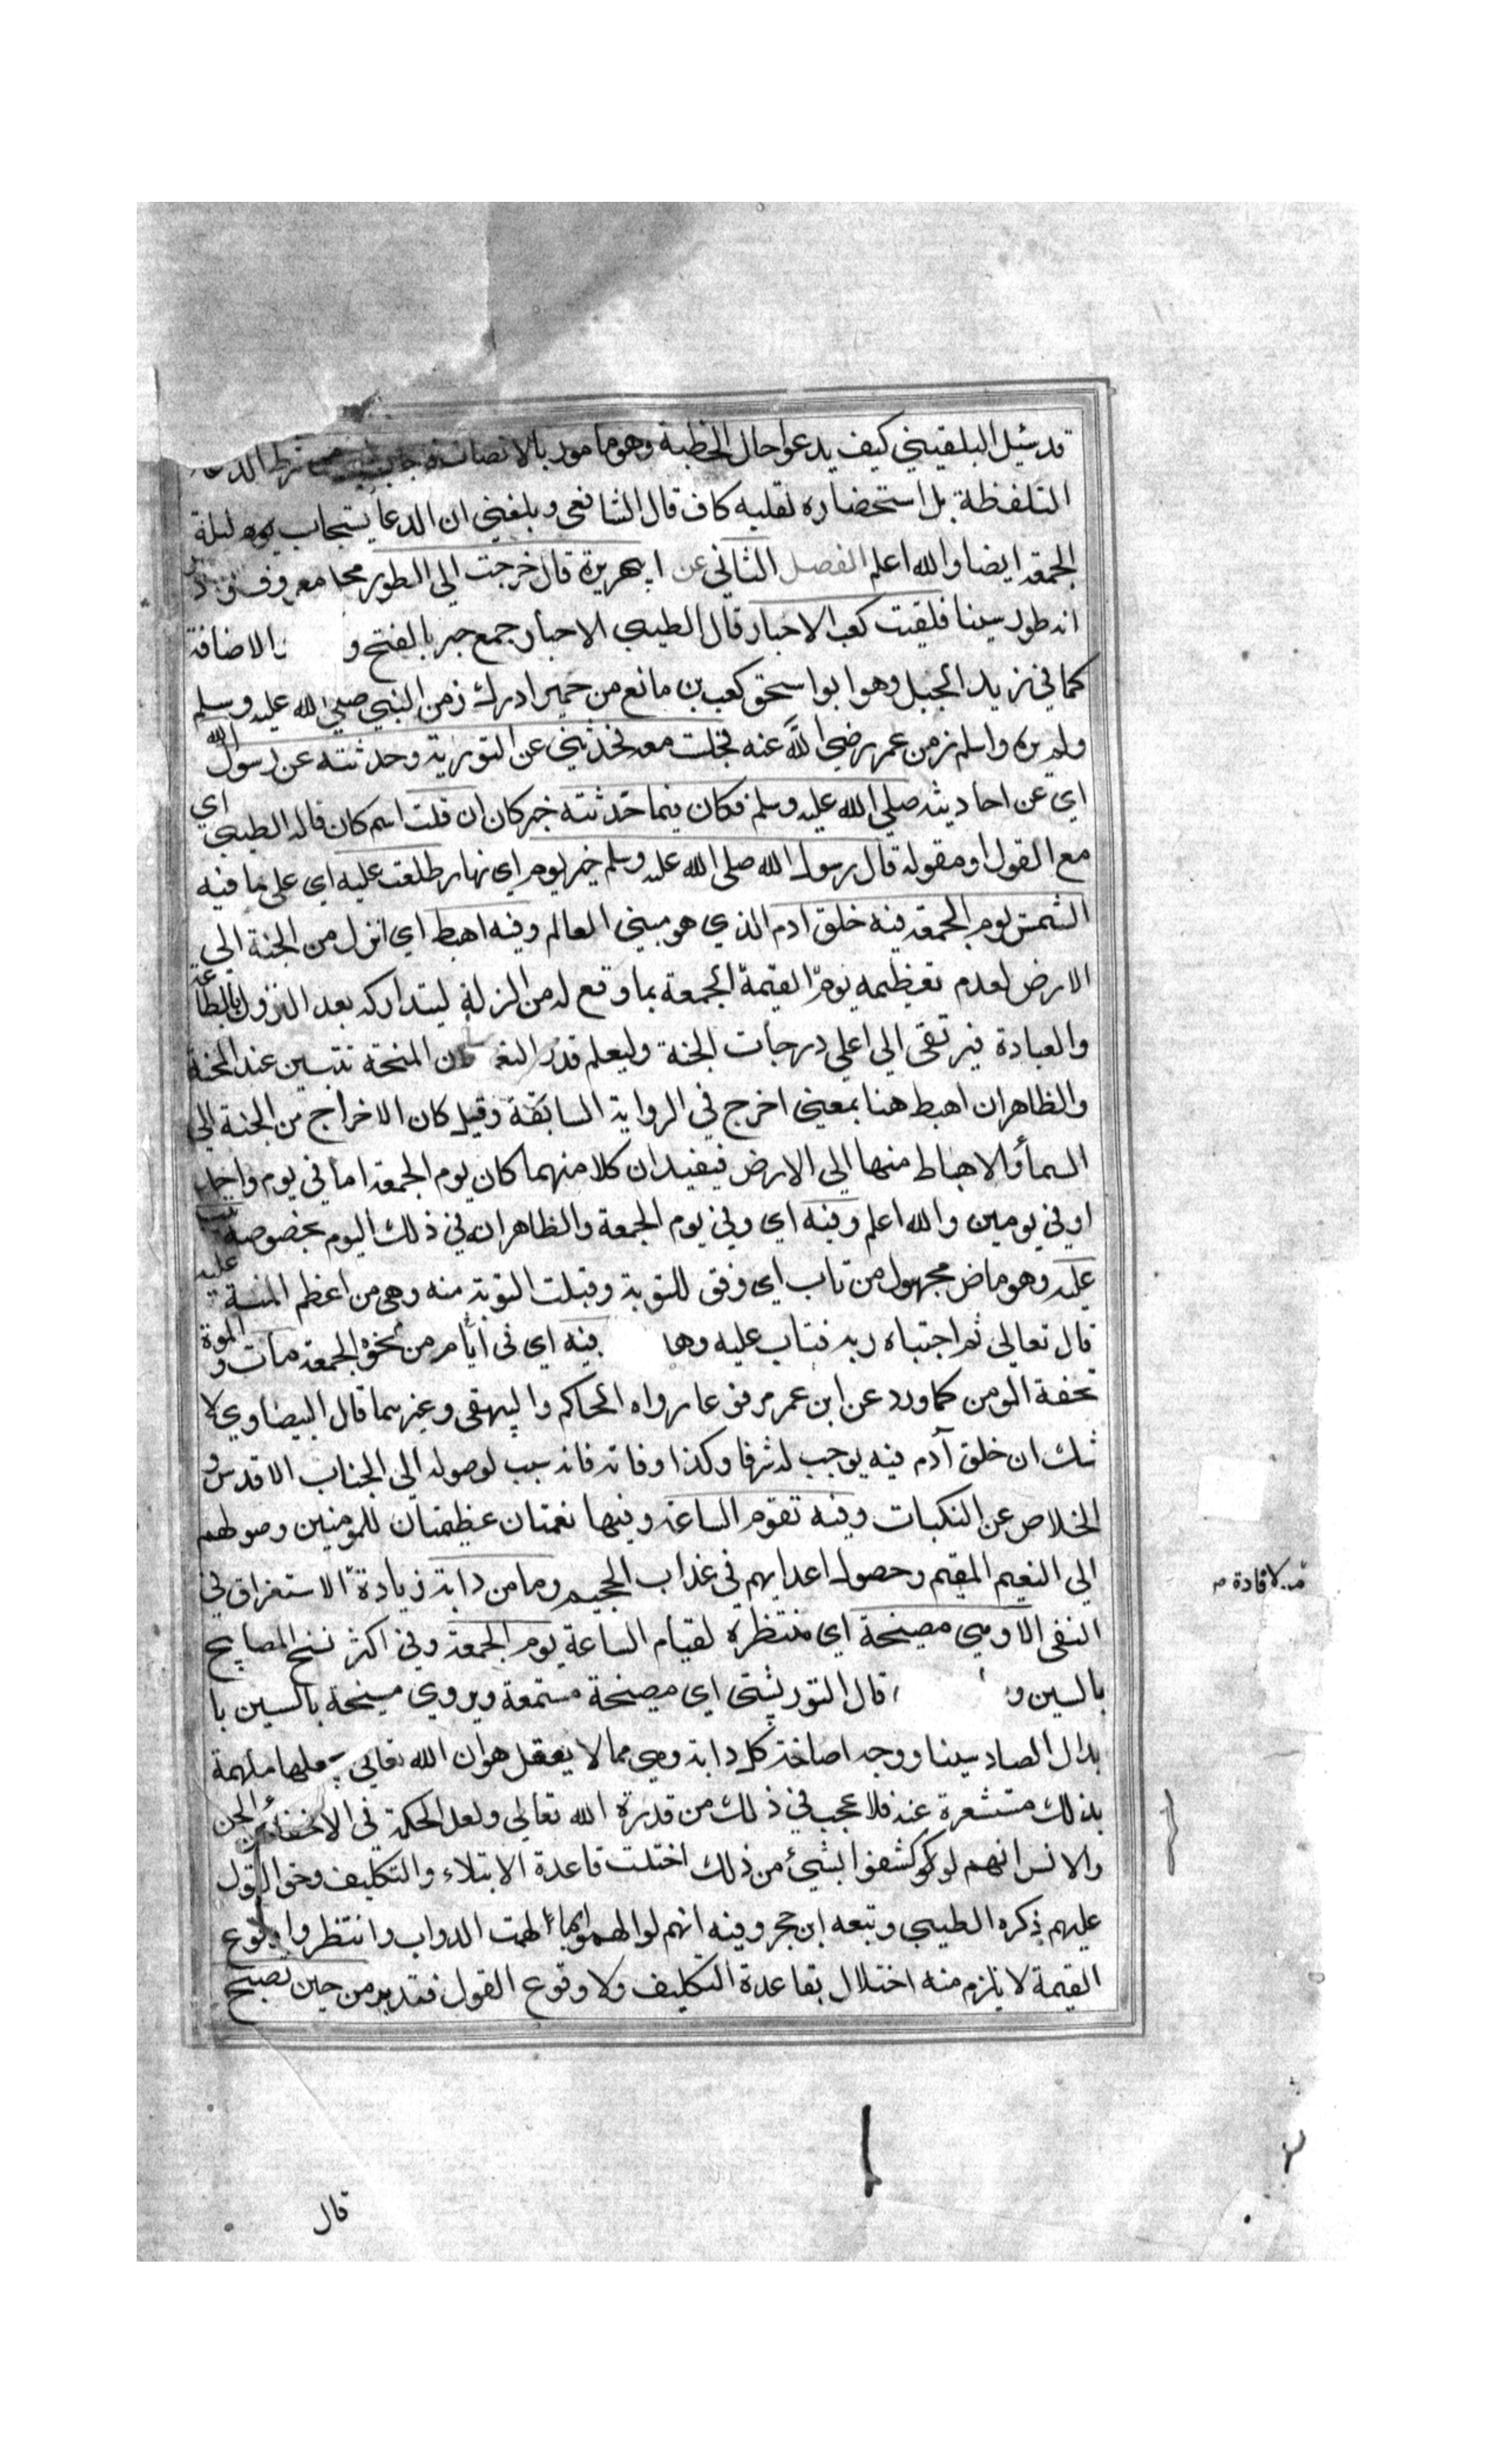 قد سئل البلقيني كيف يدعوا حال الخطبة وهو مامور بالانصات شرط الدعا
التلفظ به بل استحضاره بقلبه كاف قال الشافعي وبلغني ان الدعا يستجاب ليلة
الجمعة ايضا والله اعلم الفصل الثاني عن ابي هريرة قال خرجت الي الطور محل معروف
انه طور سينا فلقيت كعب الاحبار قال الطيبي الاحبار جمع حبر بالفتح و الاضافة
كما في زيد الخيل وهو ابو اسحق كعب بن مانع من حمير ادرك زمن النبي صلي الله عليه وسلم
ولم يره واسلم زمن عمر رضي الله عنه فجلست معه فحدثني عن التورية وحدثته عن رسول الله
اي عن احاديثه صلي الله عليه وسلم فكان فيما حدثته خبر كان ان قلت اسم كان قاله الطيبي اي
مع القول او مقوله قال رسول الله صلى الله عليه وسلم خير يوم اي نهار طلعت عليه اي على ما فيه
الشمس يوم الجمعة فيه خلق ادم الذي هو مبني العالم وفيه اهبط اي انزل من الجنة الي
الارض لعدم تعظيمه يوم الجمعة بما وقع له من الزلة ليتداركه بعد النزول بالطاعة
والعبادة فيرتقى الى اعلي درجات الجنة وليعلم قدر النعمة لان المنحة تتبين عند المحنة
والظاهر ان اهبط هنا بمعنى اخرج في الرواية السابقة وقيل كان الاخراج من الجنة الي
السماء والاهباط منها الي الارض فيفيد ان كلا منهما كان يوم الجمعة اما في يوم واحد
او في يومين والله اعلم وفيه اي وفي يوم الجمعة والظاهر انه في ذلك اليوم بخصوصه تيب
عليه وهو ماض مجهول من تاب اي وفق للتوبة وقبلت التوبة منه وهي من اعظم المنة عليه
قال تعالى ثم اجتباه ربه فتاب عليه وهدا فيه اي في ايام من نحو الجمعة مات والموت
تحفة المومن كما ورد عن ابن عمر مرفوعا رواه الحاكم والبيهقى وغيرهما قال البيضاوي لا
شك ان خلق آدم فيه يوجب له شرفا وكذا وفاته فانه سبب لوصوله الى الجناب الاقدس و
الخلاص عن النكبات وفيه تقوم الساعة وفيها نعمتان عظيمتان للمومنين وصولهم
الي النعيم المقيم وحصول اعدايهم في عذاب الجحيم وما من دابة زيادة الاستغراق في
لافادة م
النفى الا وهي مصيخة اي منتظرة لقيام الساعة يوم الجمعة وفي اكثر نسخ المصابيح
بالسين و قال التوربشتي اي مصيخة مستمعة ويروي مسيخة بالسين با
بدال الصاد سينا ووجه اصاخة كل دابة وهي مما لا يعقل هو ان الله تعالي يجعلها ملهمة
بذلك مستشعرة عنه فلا عجب في ذلك من قدرة الله تعالي ولعل الحكمة في الاخفاء عن الجن
والانس انهم لو كوشفوا بشيء من ذلك اختلت قاعدة الابتلاء والتكليف وحق القول
عليهم ذكره الطيبي وتبعه ابن حجر وفيه انهم لو الهموا بما الهمت الدواب وانتظروا وقوع
القيمة لا يلزم منه اختلال بقاعدة التكليف ولا وقوع القول فتدبر من حين تصبح
قال